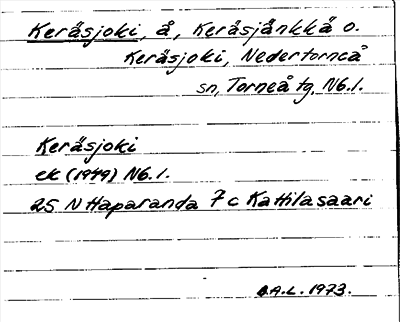 Keräsjoki, å, Keräsjänkkä o.
Keräsjoki, Nedertorneå
sn, Torneå tg, Nb. l.
Keräsjoki
ek (1949) Nb. l.
25 N Haparanda 7 c Kattilasaari
B.A.L. 1973.